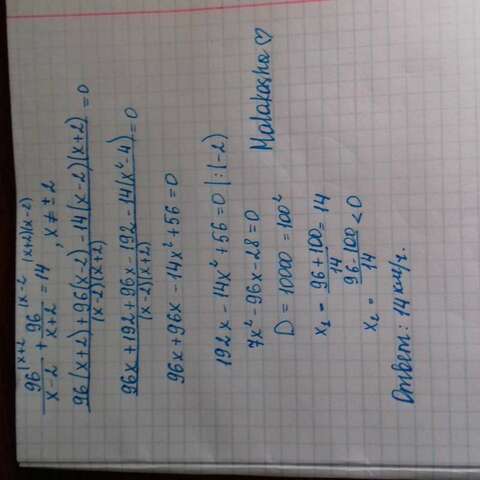 96/(x-2) |x+2 + 96/(x+2) |x-2 = 14 |(x+2)(x-2) , x ≠ ± 2
(96(x+2)+96(x-2)-14(x-2)(x+2))/((x-2)(x+2)) = 0
(96x+192+96x-192-14(x²-4))/((x-2)(x+2)) = 0
96x+96x-14x²+56=0
192x-14x²+56=0 |:(-2)
7x²-96x-28=0
D = 10000 = 100²
x₁ = (96+100)/14 = 14
x₂ = (96-100)/14 < 0
Ответ: 14 км/ч.
Malakasha ♡